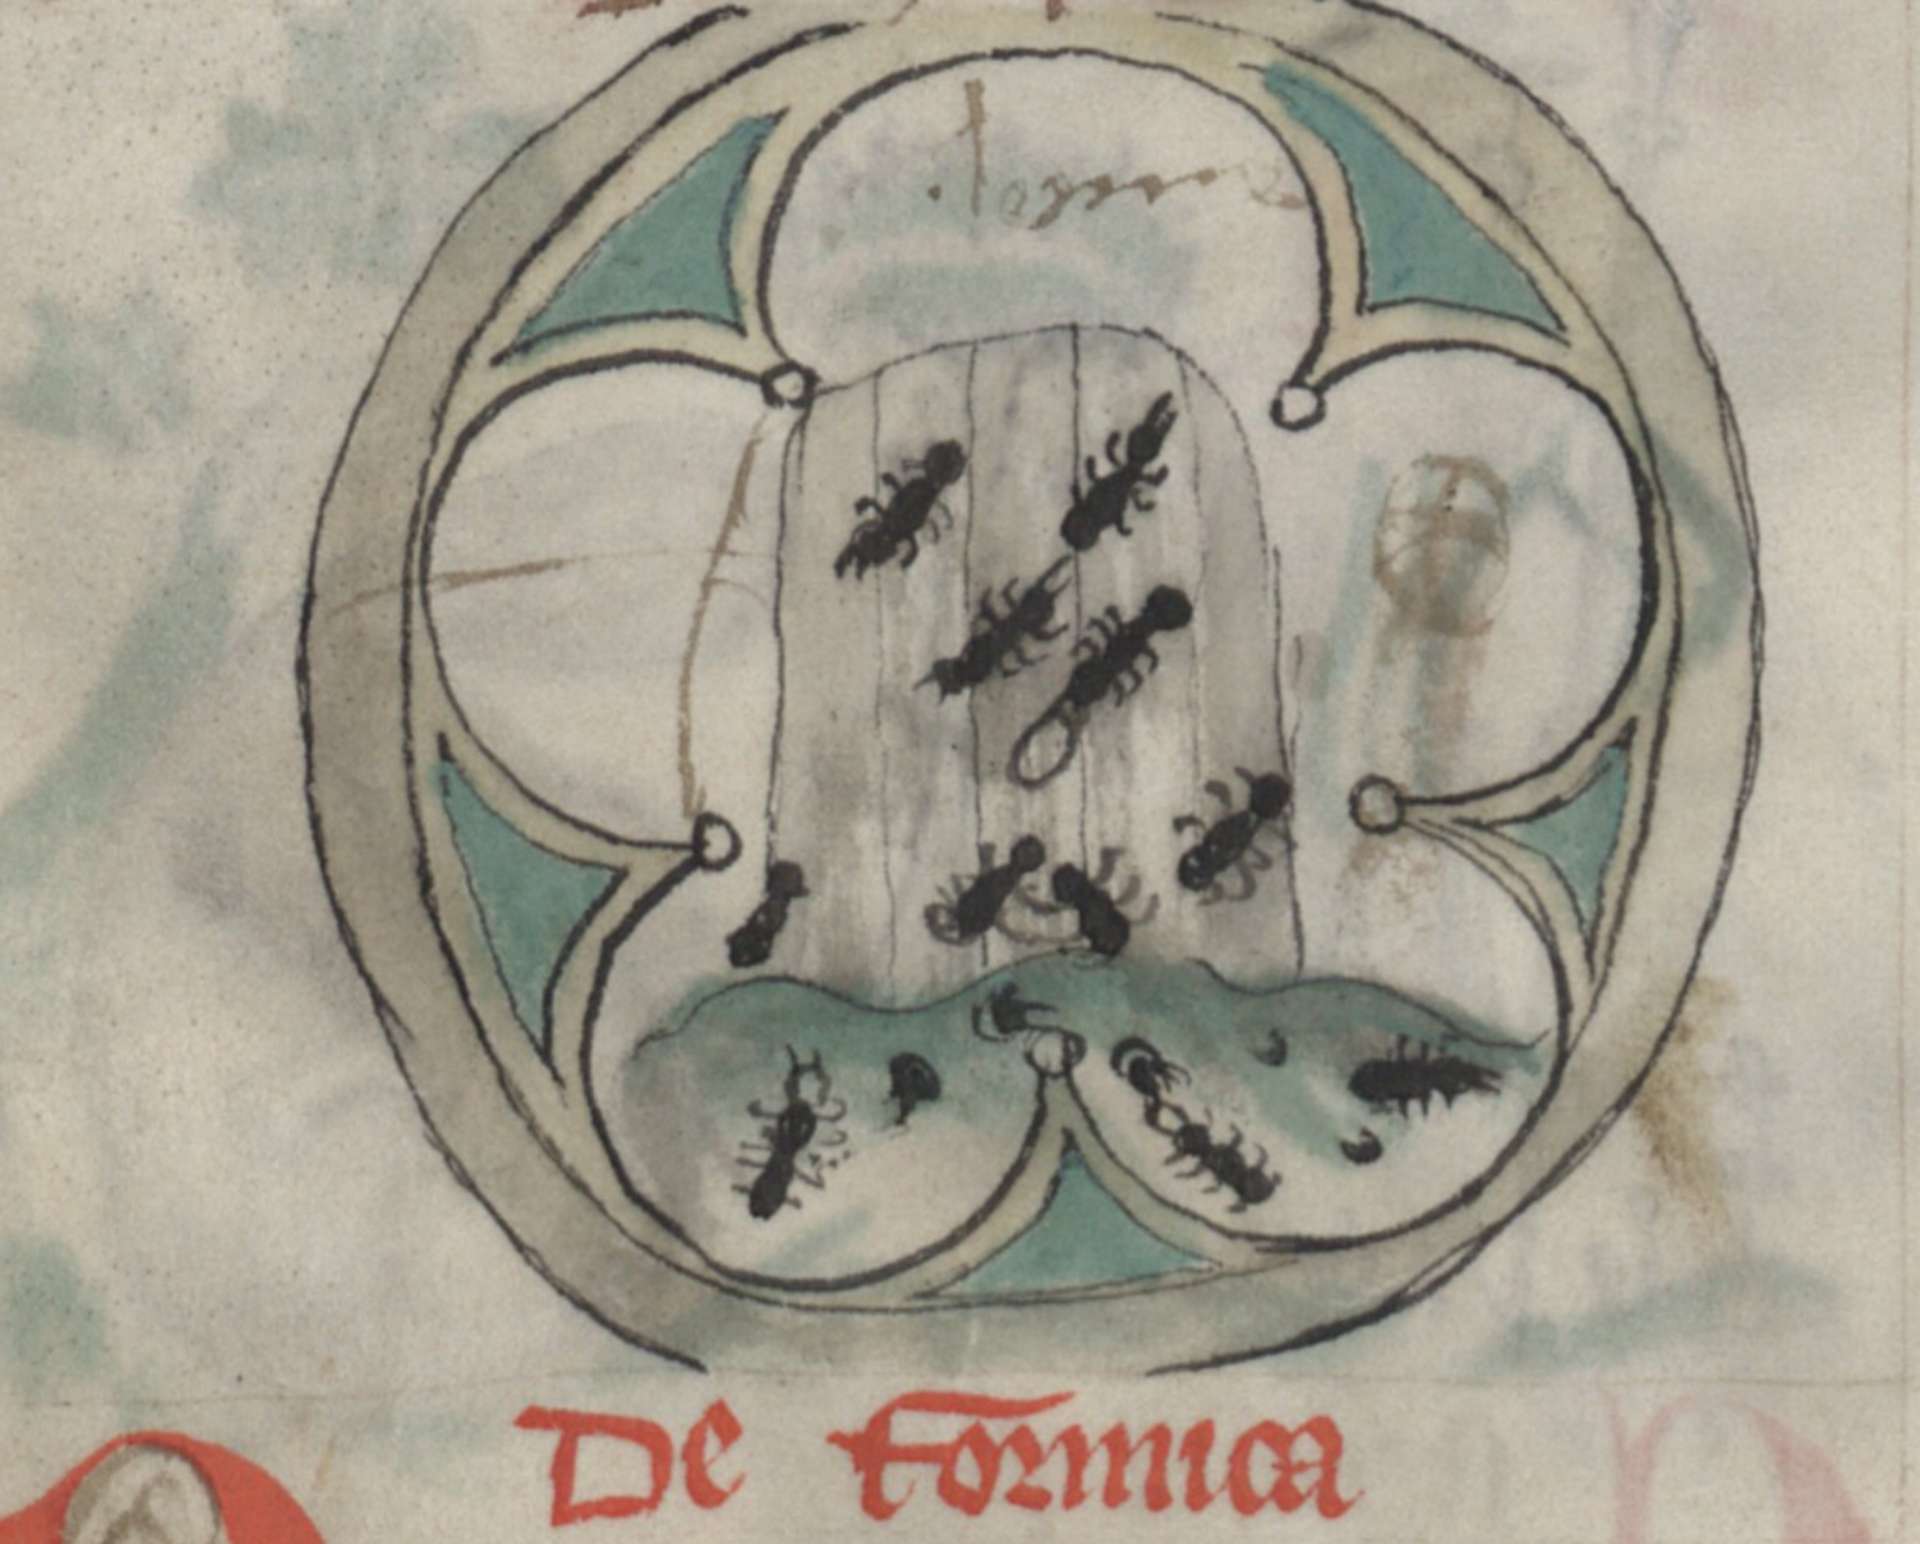 De formica